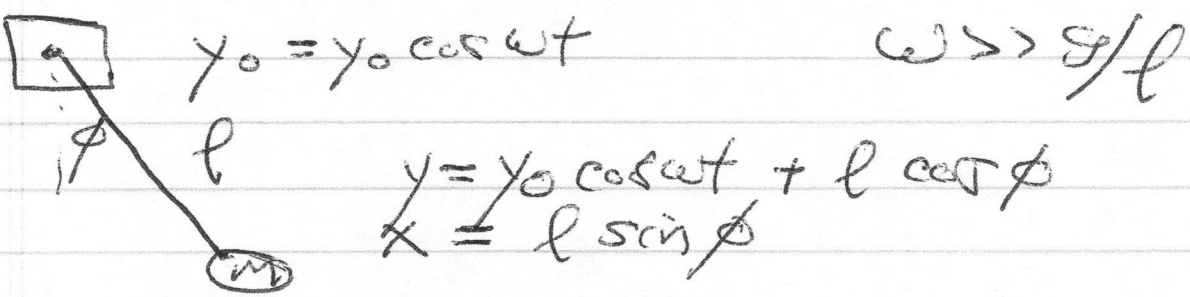 y₀ = y₀ cos ωt ω >> g/l
ϕ l
y = y₀ cos ωt + l cos ϕ
x = l sin ϕ
m